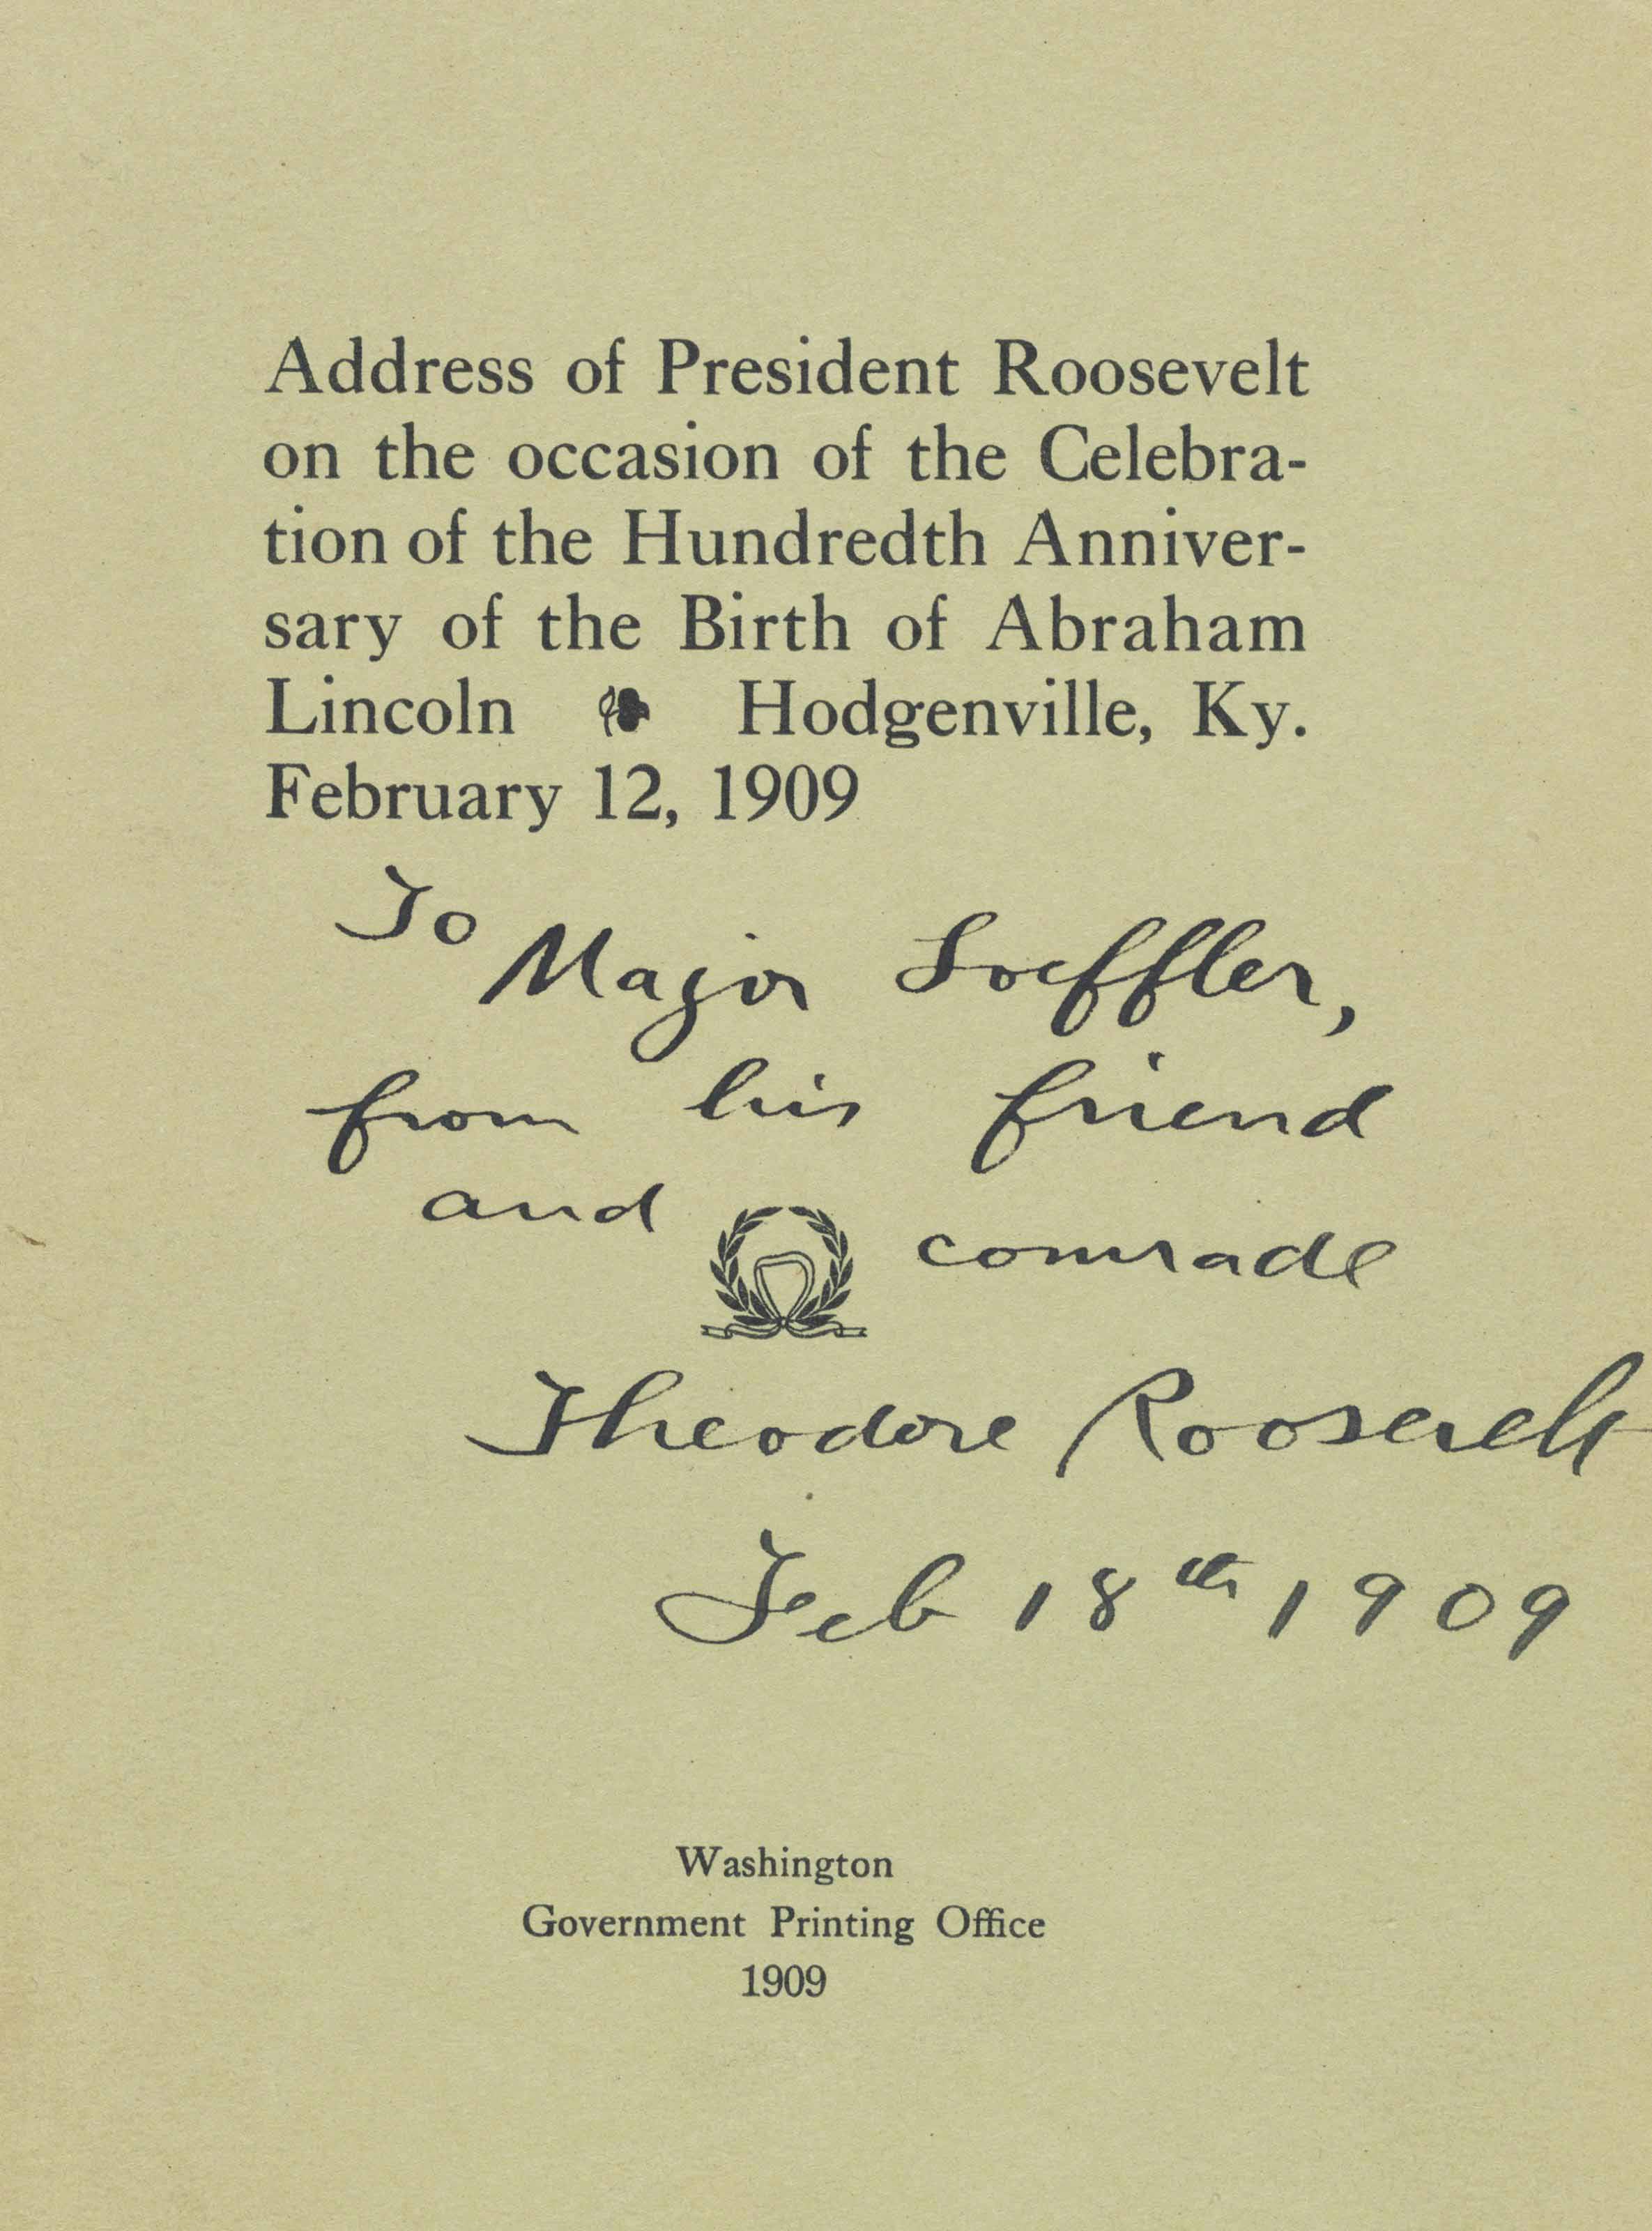 Address of President Roosevelt
on the occasion of the Celebra-
tion of the Hundredth Anniver-
sary of the Birth of Abraham
Lincoln Hodgenville, Ky.
February 12, 1909
To Major Loeffler,
from his friend
and comrade
Theodore Roosevelt
Feb 18th 1909
Washington
Government Printing Office
1909